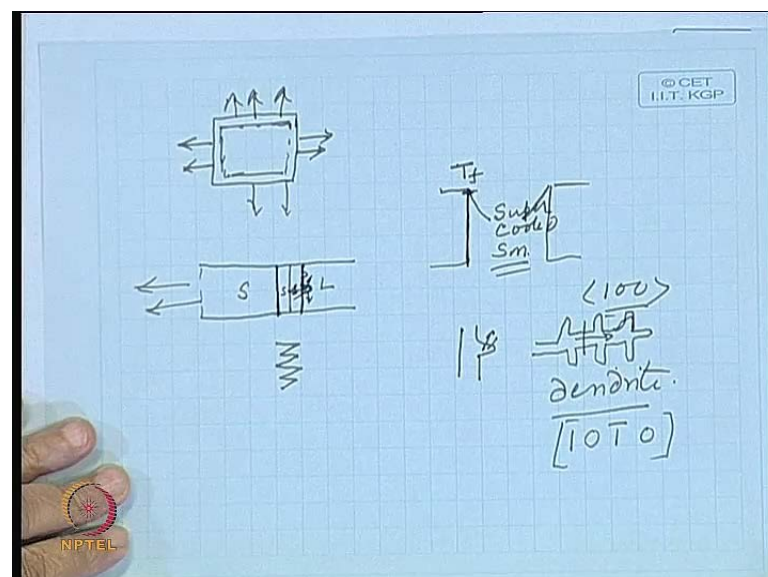 © CET
I.I.T. KGP
Tf
Super
Cooled
Sm.
S
S
L
<100>
dendrite.
[1010]
NPTEL